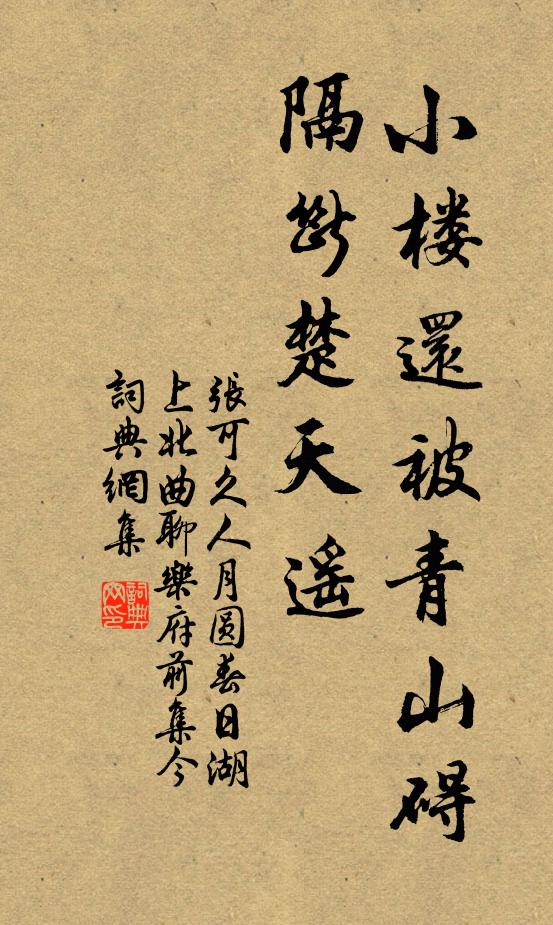 小楼還被青山碍
隔斷楚天遥
張可久人月圓春日湖
上北曲聯樂府前集今
詞典網集
詞典网印